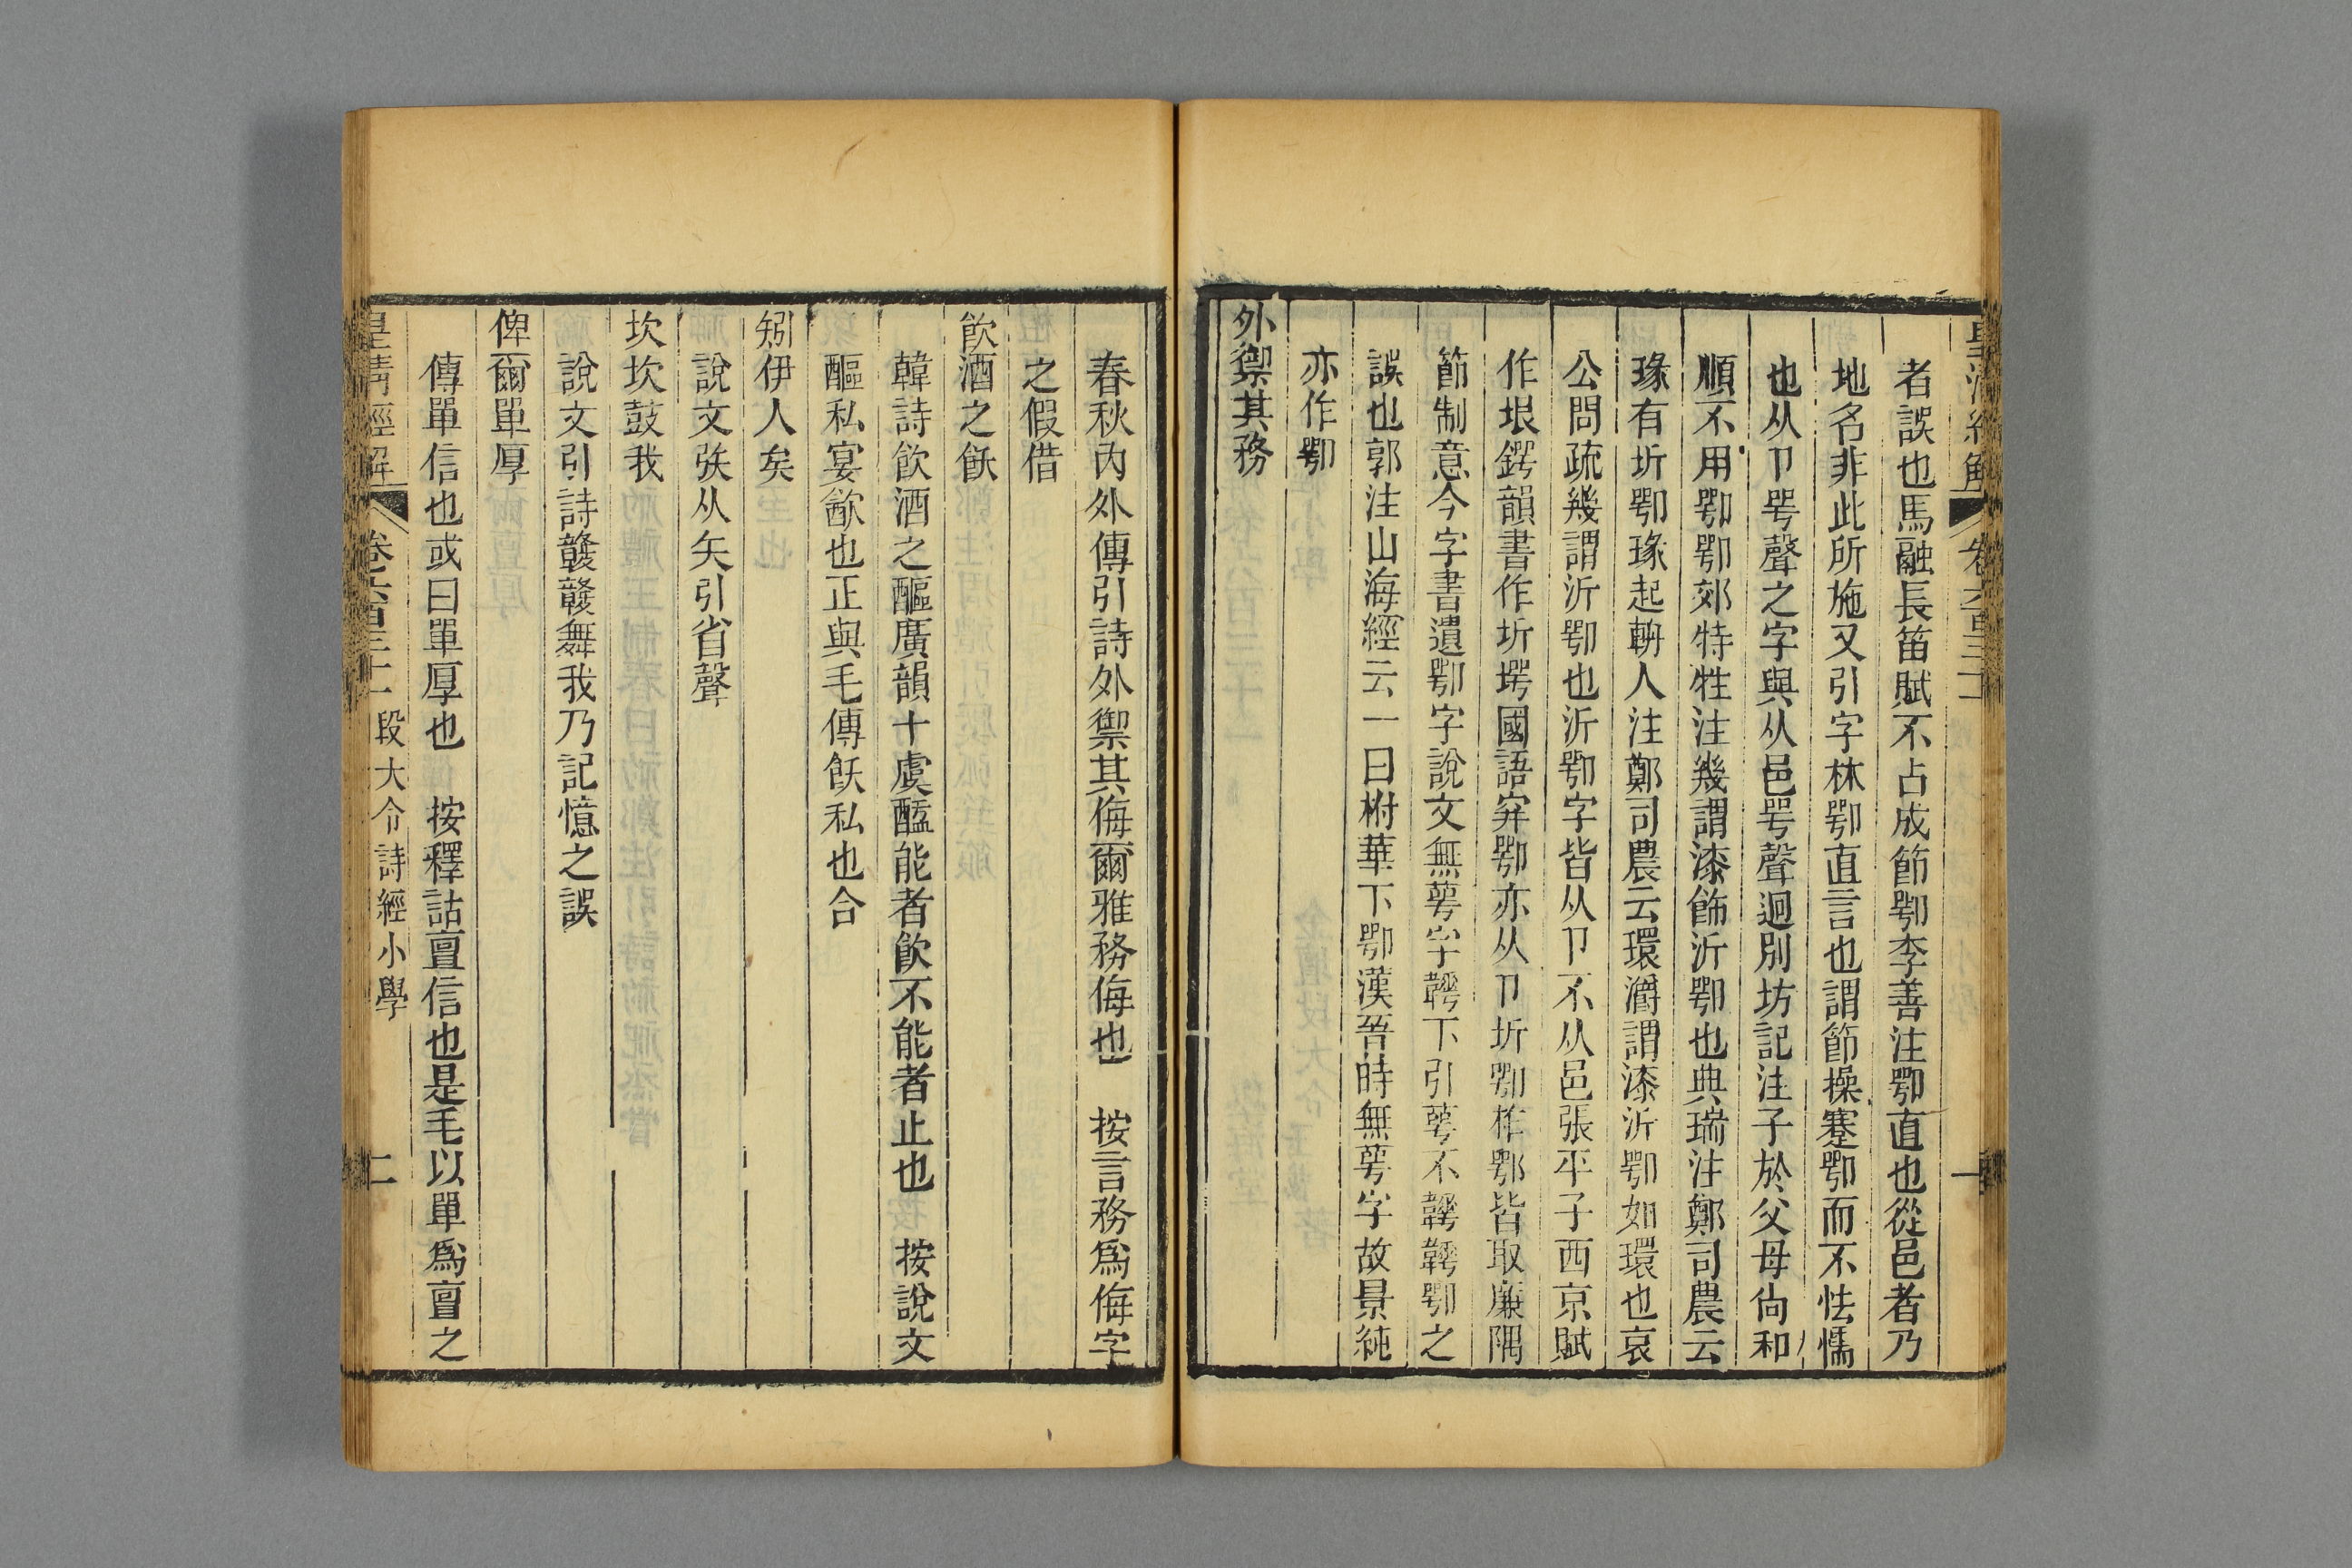 皇清經解 卷六百三十二 一
者誤也馬融長笛賦不占成節卾李善注卾直也從邑者乃
地名非此所施又引字林卾直言也謂節操蹇卾而不怯懦
也从卩咢聲之字與从邑咢聲迥別坊記注子於父母尚和
順不用卾卾郊特牲注幾謂漆飾沂卾也典瑞注鄭司農云
瑑有圻卾瑑起輈人注鄭司農云環灂謂漆沂卾如環也哀
公問疏幾謂沂卾也沂卾字皆从卩不从邑張平子西京賦
作垠鍔韻書作圻堮國語穽卾亦从卩圻卾柞卾皆取廉隅
節制意今字書遺卾字說文無萼字韡下引萼不韡韡卾之
誤也郭注山海經云一曰柎華下卾漢晉時無萼字故景純
亦作卾
外禦其務
春秋內外傳引詩外禦其侮爾雅務侮也 按言務爲侮字
之假借
飮酒之飫
韓詩飮酒之醧廣韻十虞醧能者飮不能者止也 按說文
醧私宴飮也正與毛傳飫私也合
矧伊人矣
說文矤从矢引省聲
坎坎鼓我
說文引詩竷竷舞我乃記憶之誤
俾爾單厚
傳單信也或曰單厚也 按釋詁亶信也是毛以單爲亶之
皇清經解 卷六百三十一 段大令詩經小學 二